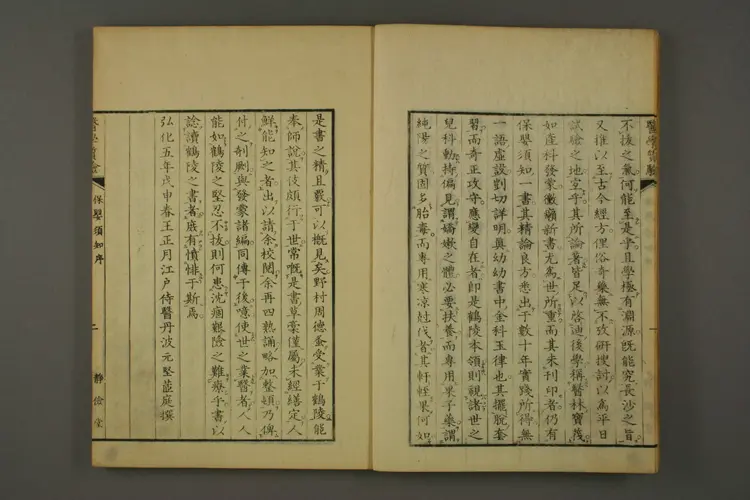 不拔之黨何能至是乎且學極有淵源既能究長沙之旨
又推以至古今經方俚俗奇藥無不攷研搜討以為平日
試驗之地宜乎其所論著皆足以啓迪後學稱醫林寶筏
如產科發蒙黴癩新書尤為世所重而其未刊印者仍有
保嬰須知一書其精論良方悉出于數十年實踐所得無
一語虛設剴切詳明奧幼幼書中金科玉律也其擺脫套
習而奇正攻守應變自在者卽是鶴陵本領則視諸世之
兒科動持偏見謂嬌嫩之體必要扶養而專用果子藥謂
純陽之質固多胎毒而專用寒凉尅伐者其軒輊果何如
是書之精且覈可以概見矣野村周德蚤受業于鶴陵能
奉師說其伎頗行于世常慨是書草稾僅屬未經繕定人
鮮能知之者出以請余校閱余再四熟誦略加整頓乃俾
付之剞劂與發蒙諸編同傳于後噫使世之業醫者人人
能如鶴陵之堅忍不拔則何患沈痼艱險之難療乎書以
諗讀鶴陵之書者庶有憤悱于斯焉
弘化五年戊申春王正月江戶侍醫丹波元堅茝庭撰
保嬰須知序
二
靜儉堂